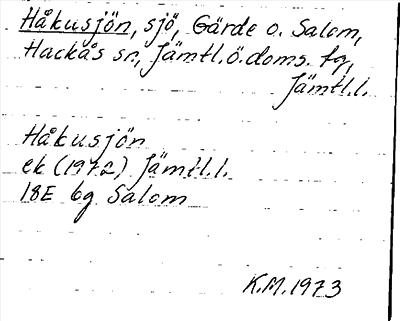 Håkusjön, sjö, Gärde o. Salom,
Hackås sn., Jämtl.ö.doms. tg,
Jämtl.l.
Håkusjön
ek (1972) Jämtl.l.
18E 6g Salom
K.M.1973